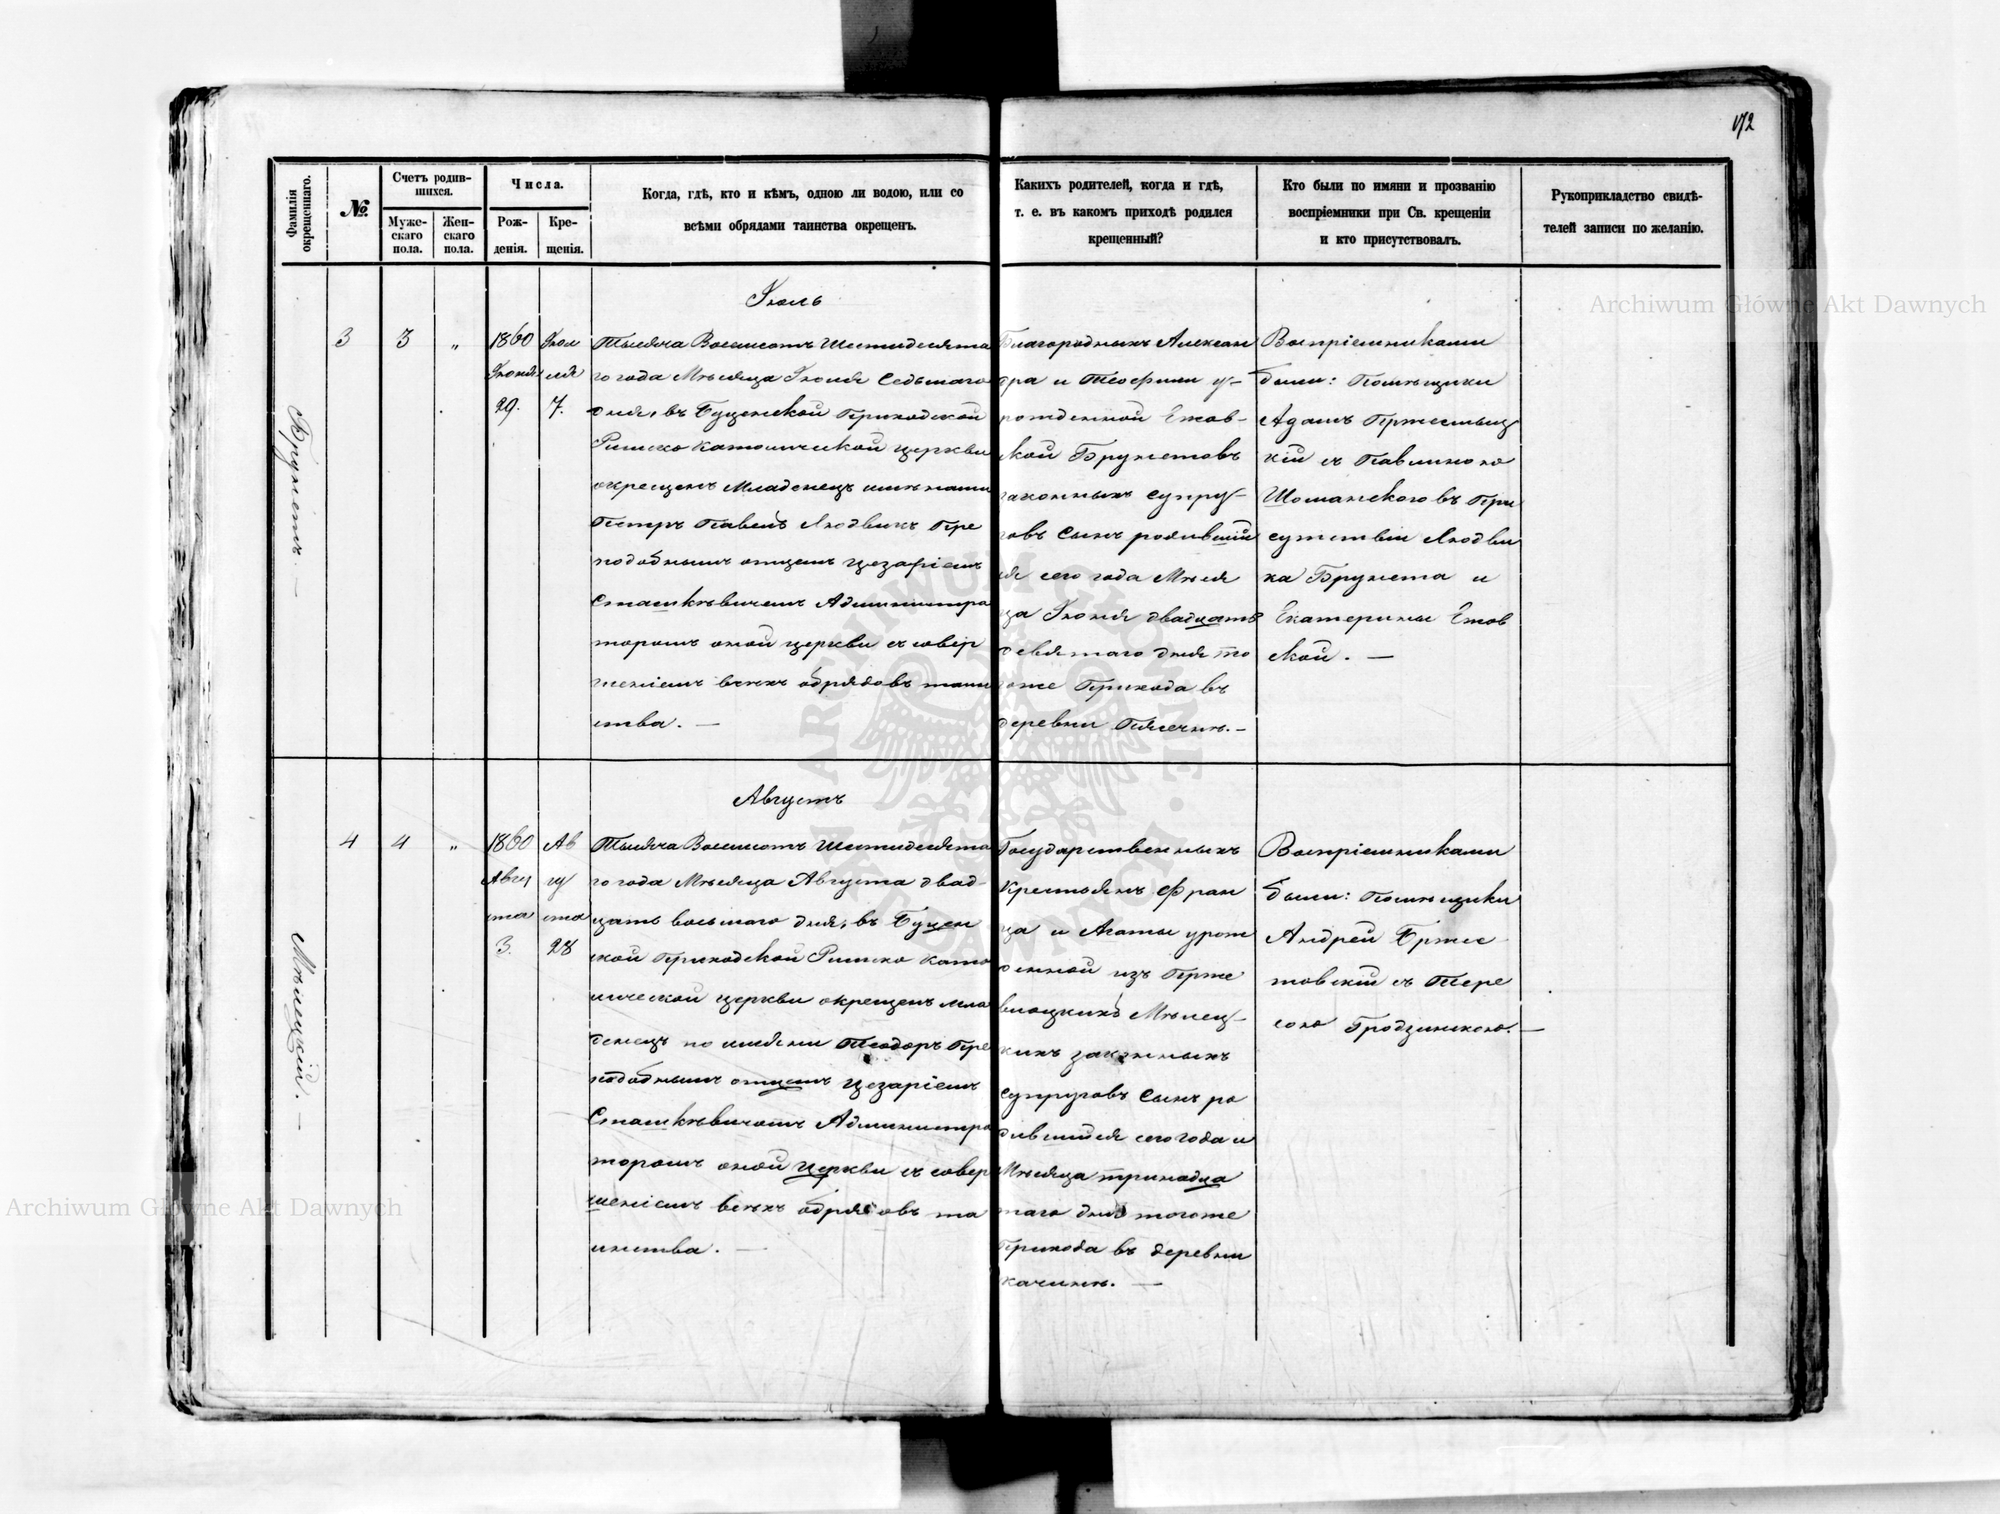 172
Фамилія
окрещеннаго.
№.
Счетъ родив-
шихся.
Муже-
скаго
пола.
Жен-
скаго
пола.
Числа.
Рож-
денія.
Кре-
щенія.
Когда, гдѣ, кто и кѣмъ, одною ли водою, или со
всѣми обрядами таинства окрещенъ.
Какихъ родителей, когда и гдѣ,
т. е. въ какомъ приходѣ родился
крещенный?
Кто были по имяни и прозванію
воспріемники при Св. крещеніи
и кто присутствовалъ.
Рукоприкладство свидѣ-
телей записи по желанію.
Іюль
Брунетъ. —
3
3
"
1860
Іюня
29.
Іюл
ля
7.
Тысяча Восемсотъ Шестидесята
го года Мѣсяца Іюля Седьмаго
дня, въ Буценской Приходской
Римско Католической церкви
окрещенъ Младенецъ имѣнами
Петръ Павелъ Людвикъ Пре
подобнымъ отцемъ Цезаріемъ
Сташкѣвичемъ Администра
торомъ оной церкви съ совер
шеніемъ всѣхъ обрядовъ таин
ства. —
Благородныхъ Алексан
дра и Теофили у-
рожденной Ежов-
ской Брунетовъ
законныхъ супру-
говъ Сынъ родивший
ся сего года Мѣся
ца Іюня двадцать
девятаго дня то
гоже Прихода въ
деревни Пясечнѣ. —
Воспріемниками
были: Помѣщики
Адамъ Пржесмыц
кій съ Павлиною
Шоманского въ При
сутствіи Людви
ка Брунета и
Екатерины Ежов
ской. —
Августъ
Мѣлецкій. —
4
4
"
1860
Авгу
ста
3.
Ав
гу
ста
28
Тысяча Восемсотъ Шестидесята
го года Мѣсяца Августа двад-
цать восьмаго дня, въ Буцен
ской Приходской Римско Като
лической церкви окрещенъ мла
денецъ по имяни Теодоръ Пре
подобнымъ отцемъ Цезаріемъ
Сташкѣвичемъ Администра
торомъ оной Церкви съ совер
шеніемъ всѣхъ обрядовъ та
инства. —
Государственныхъ
крестьянъ Фран
ца и Агаты урож
денной изъ Прже
Мѣлец-
кихъ законныхъ
супруговъ Сынъ ро
дившийся сего года и
Мѣсяца тринадца
таго дня тогоже
Прихода въ деревни
качинѣ. —
Воспріемниками
были: Помѣщики
Андрей Бржес
товскій съ Тере
сою Гродзинскою. —
Archiwum Główne Akt Dawnych
Archiwum Główne Akt Dawnych
ARCHIWUM GŁÓWNE AKT DAWNYCH